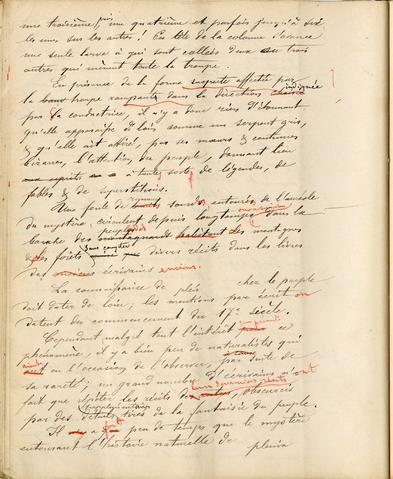 une troisième, puis une quatrième et parfois jusqu'à six
les unes sur les autres! En tête de la colonne s'avance
une seule larve à qui sont collées deux ou trois
autres qui mènent toute la troupe.
En présence de la forme suspecte affectée par
la troupe rampante dans la direction indiquée
par la conductrice, il n'y a donc rien d'étonnant
qu'elle apparaisse de loin comme un serpent gris,
& qu'elle ait attiré, par ses mœurs & coutumes
bizarres, l'attention du peuple, donnant lieu
à toute sorte de légendes, de
fables & de superstitions.
Une foule de rumeurs sourdes, entourées de l'auréole
du mystère, circulent depuis longtemps dans la
bouche des peuples des montagnes
& des forêts sans compter divers récits dans les livres
des écrivains anciens.
La connaissance de chez le peuple
doit dater de loin, les mentions par écrit
datent du commencement du 17e siècle.
Cependant malgré tout l'intérêt ce
phénomène, il y a bien peu de naturalistes qui
aient eu l'occasion de l'observer, par suite de
sa rareté; un grand nombre d'écrivains n'ont
fait que répéter les récits de leurs devanciers, obscurcis
par des détails tirés de la fantaisie du peuple.
Il y a peu de temps que le mystère
entourant l'histoire naturelle de